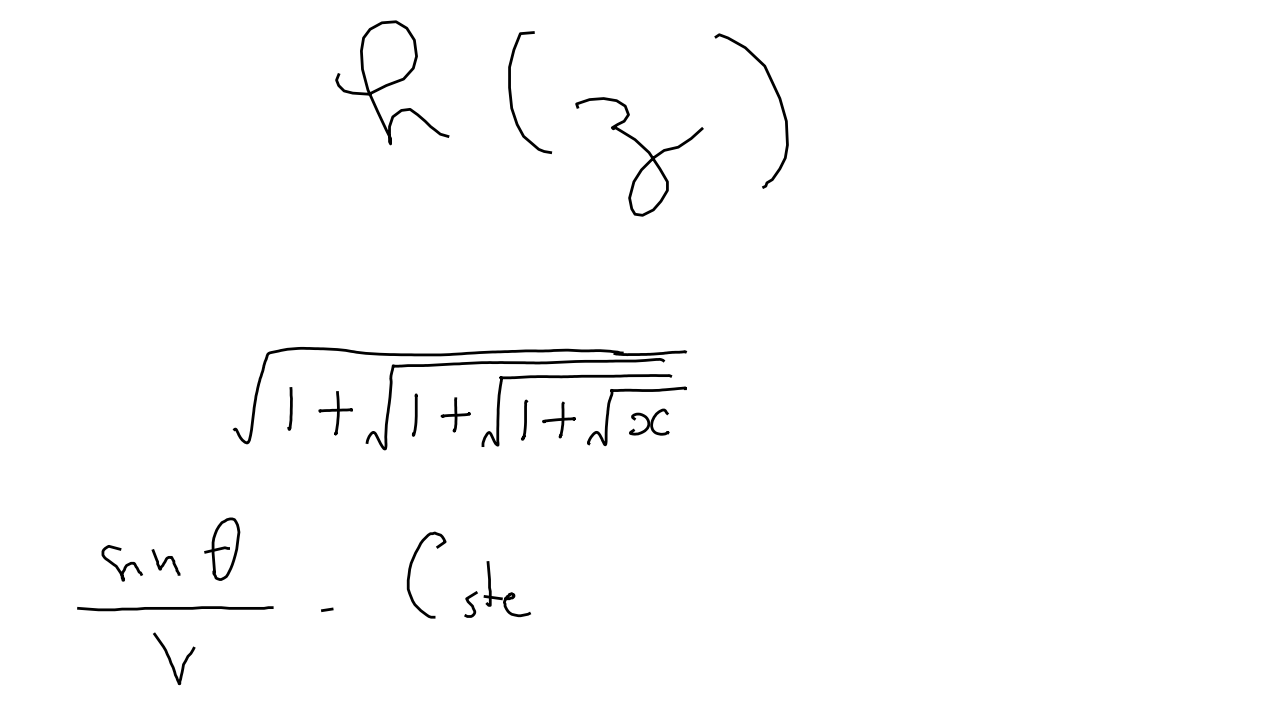 h(z)
√(1+√(1+√(1+√x)))
sin θ / v - Cste